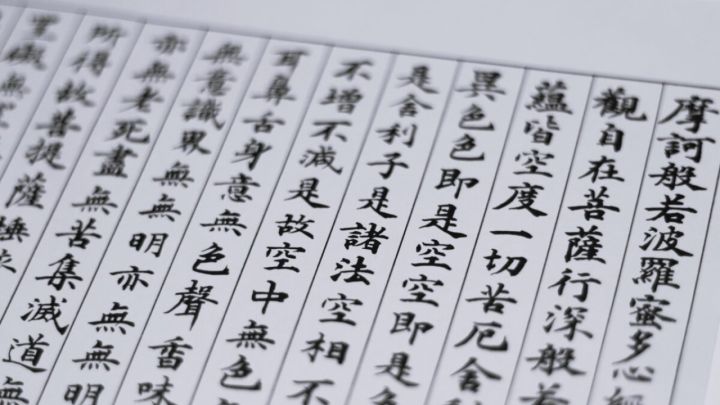 摩訶般若波羅蜜多心經
觀自在菩薩行深般若
蘊皆空度一切苦厄舍利
異色色即是空空即是色
是舍利子是諸法空相不
不增不減是故空中無色
耳鼻舌身意無色聲香味
無意識界無無明亦無無明
亦無老死盡無苦集滅道無
所得故菩提薩埵依
罣礙無罣